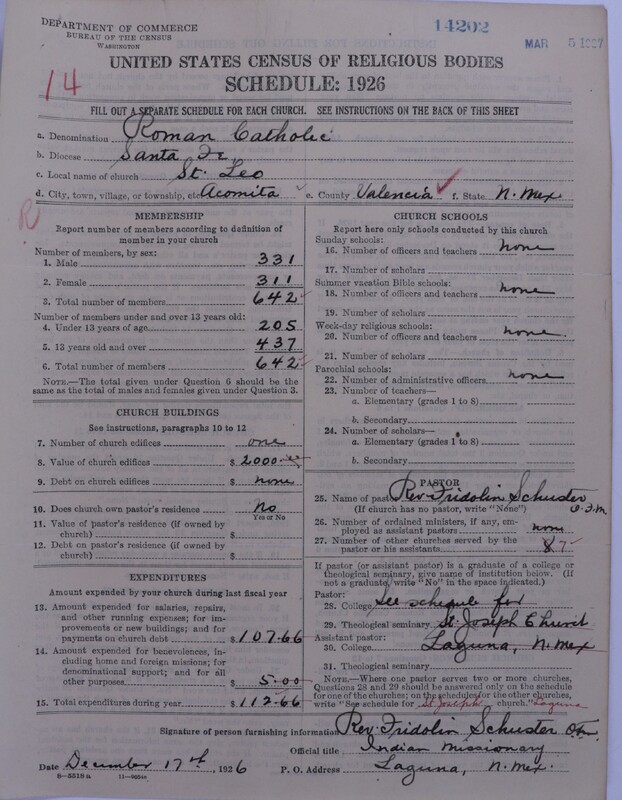 DEPARTMENT OF COMMERCE
BUREAU OF THE CENSUS
WASHINGTON
14202
MAR 5 1927
UNITED STATES CENSUS OF RELIGIOUS BODIES
SCHEDULE: 1926
14
FILL OUT A SEPARATE SCHEDULE FOR EACH CHURCH. SEE INSTRUCTIONS ON THE BACK OF THIS SHEET
a. Denomination Roman Catholic
b. Diocese Santa Fe
c. Local name of church St. Leo
d. City, town, village, or township, etc Acomita e. County Valencia f. State N. Mex
R
MEMBERSHIP
Report number of members according to definition of
member in your church
Number of members, by sex:
1. Male 331
2. Female 311
3. Total number of members 642
Number of members under and over 13 years old:
4. Under 13 years of age 205
5. 13 years old and over 437
6. Total number of members 642
NOTE.—The total given under Question 6 should be
same as the total of males and females given under Question 3.
CHURCH BUILDINGS
See instructions, paragraphs 10 to 12
7. Number of church edifices one
8. Value of church edifices $ 2000
9. Debt on church edifices $ none
10. Does church own pastor's residence No
Yes or No
11. Value of pastor's residence (if owned by
church) $
12. Debt on pastor's residence (if owned by
church) $
EXPENDITURES
Amount expended by your church during last fiscal year
13. Amount expended for salaries, repairs,
and other running expenses; for im-
provements or new buildings; and for
payments on church debt $ 107.66
14. Amount expended for benevolences, in-
cluding home and foreign missions; for
denominational support; and for all
other purposes $ 5.00
15. Total expenditures during year $ 112.66
CHURCH SCHOOLS
Report here only schools conducted by this church
Sunday schools:
16. Number of officers and teachers none
17. Number of scholars
Summer vacation Bible schools:
18. Number of officers and teachers none
19. Number of scholars
Week-day religious schools:
20. Number of officers and teachers none
21. Number of scholars
Parochial schools:
22. Number of administrative officers none
23. Number of teachers—
a. Elementary (grades 1 to 8)
b. Secondary
24. Number of scholars—
a. Elementary (grades 1 to 8)
b. Secondary
PASTOR
25. Name of pastor Rev. Fridolin Schuster O.F.M
(If church has no pastor, write "None")
26. Number of ordained ministers, if any, em-
ployed as assistant pastors none
27. Number of other churches served by the
pastor or his assistants 7
If pastor (or assistant pastor) is a graduate of a college or
theological seminary, give name of institution below. (If
not a graduate, write "No" in the space indicated.)
Pastor:
28. College See schedule for
29. Theological seminary St. Joseph Church
Assistant pastor:
30. College Laguna, N. Mex
31. Theological seminary
NOTE.—Where one pastor serves two or more churches,
Questions 28 and 29 should be answered only on the schedule
for one of the churches; on the schedules for the other churches,
write "See schedule for St Joseph church." Laguna
Signature of person furnishing information Rev. Fridolin Schuster Ofm
Official title Indian Missionary
Date December 17th, 1926 P. O. Address Laguna, N. Mex.